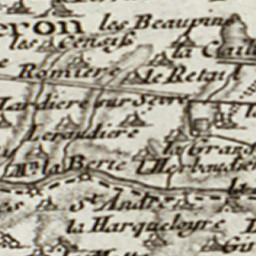 eron
les Beaupins
les Censif
la Caill
Romiere
le Retail
Jardiere sur Sevre
Leraudiere
la Grand
Mn. la Berie
L'Herbaudier
la
es
St. Andre
la Harqueloyre
Gir